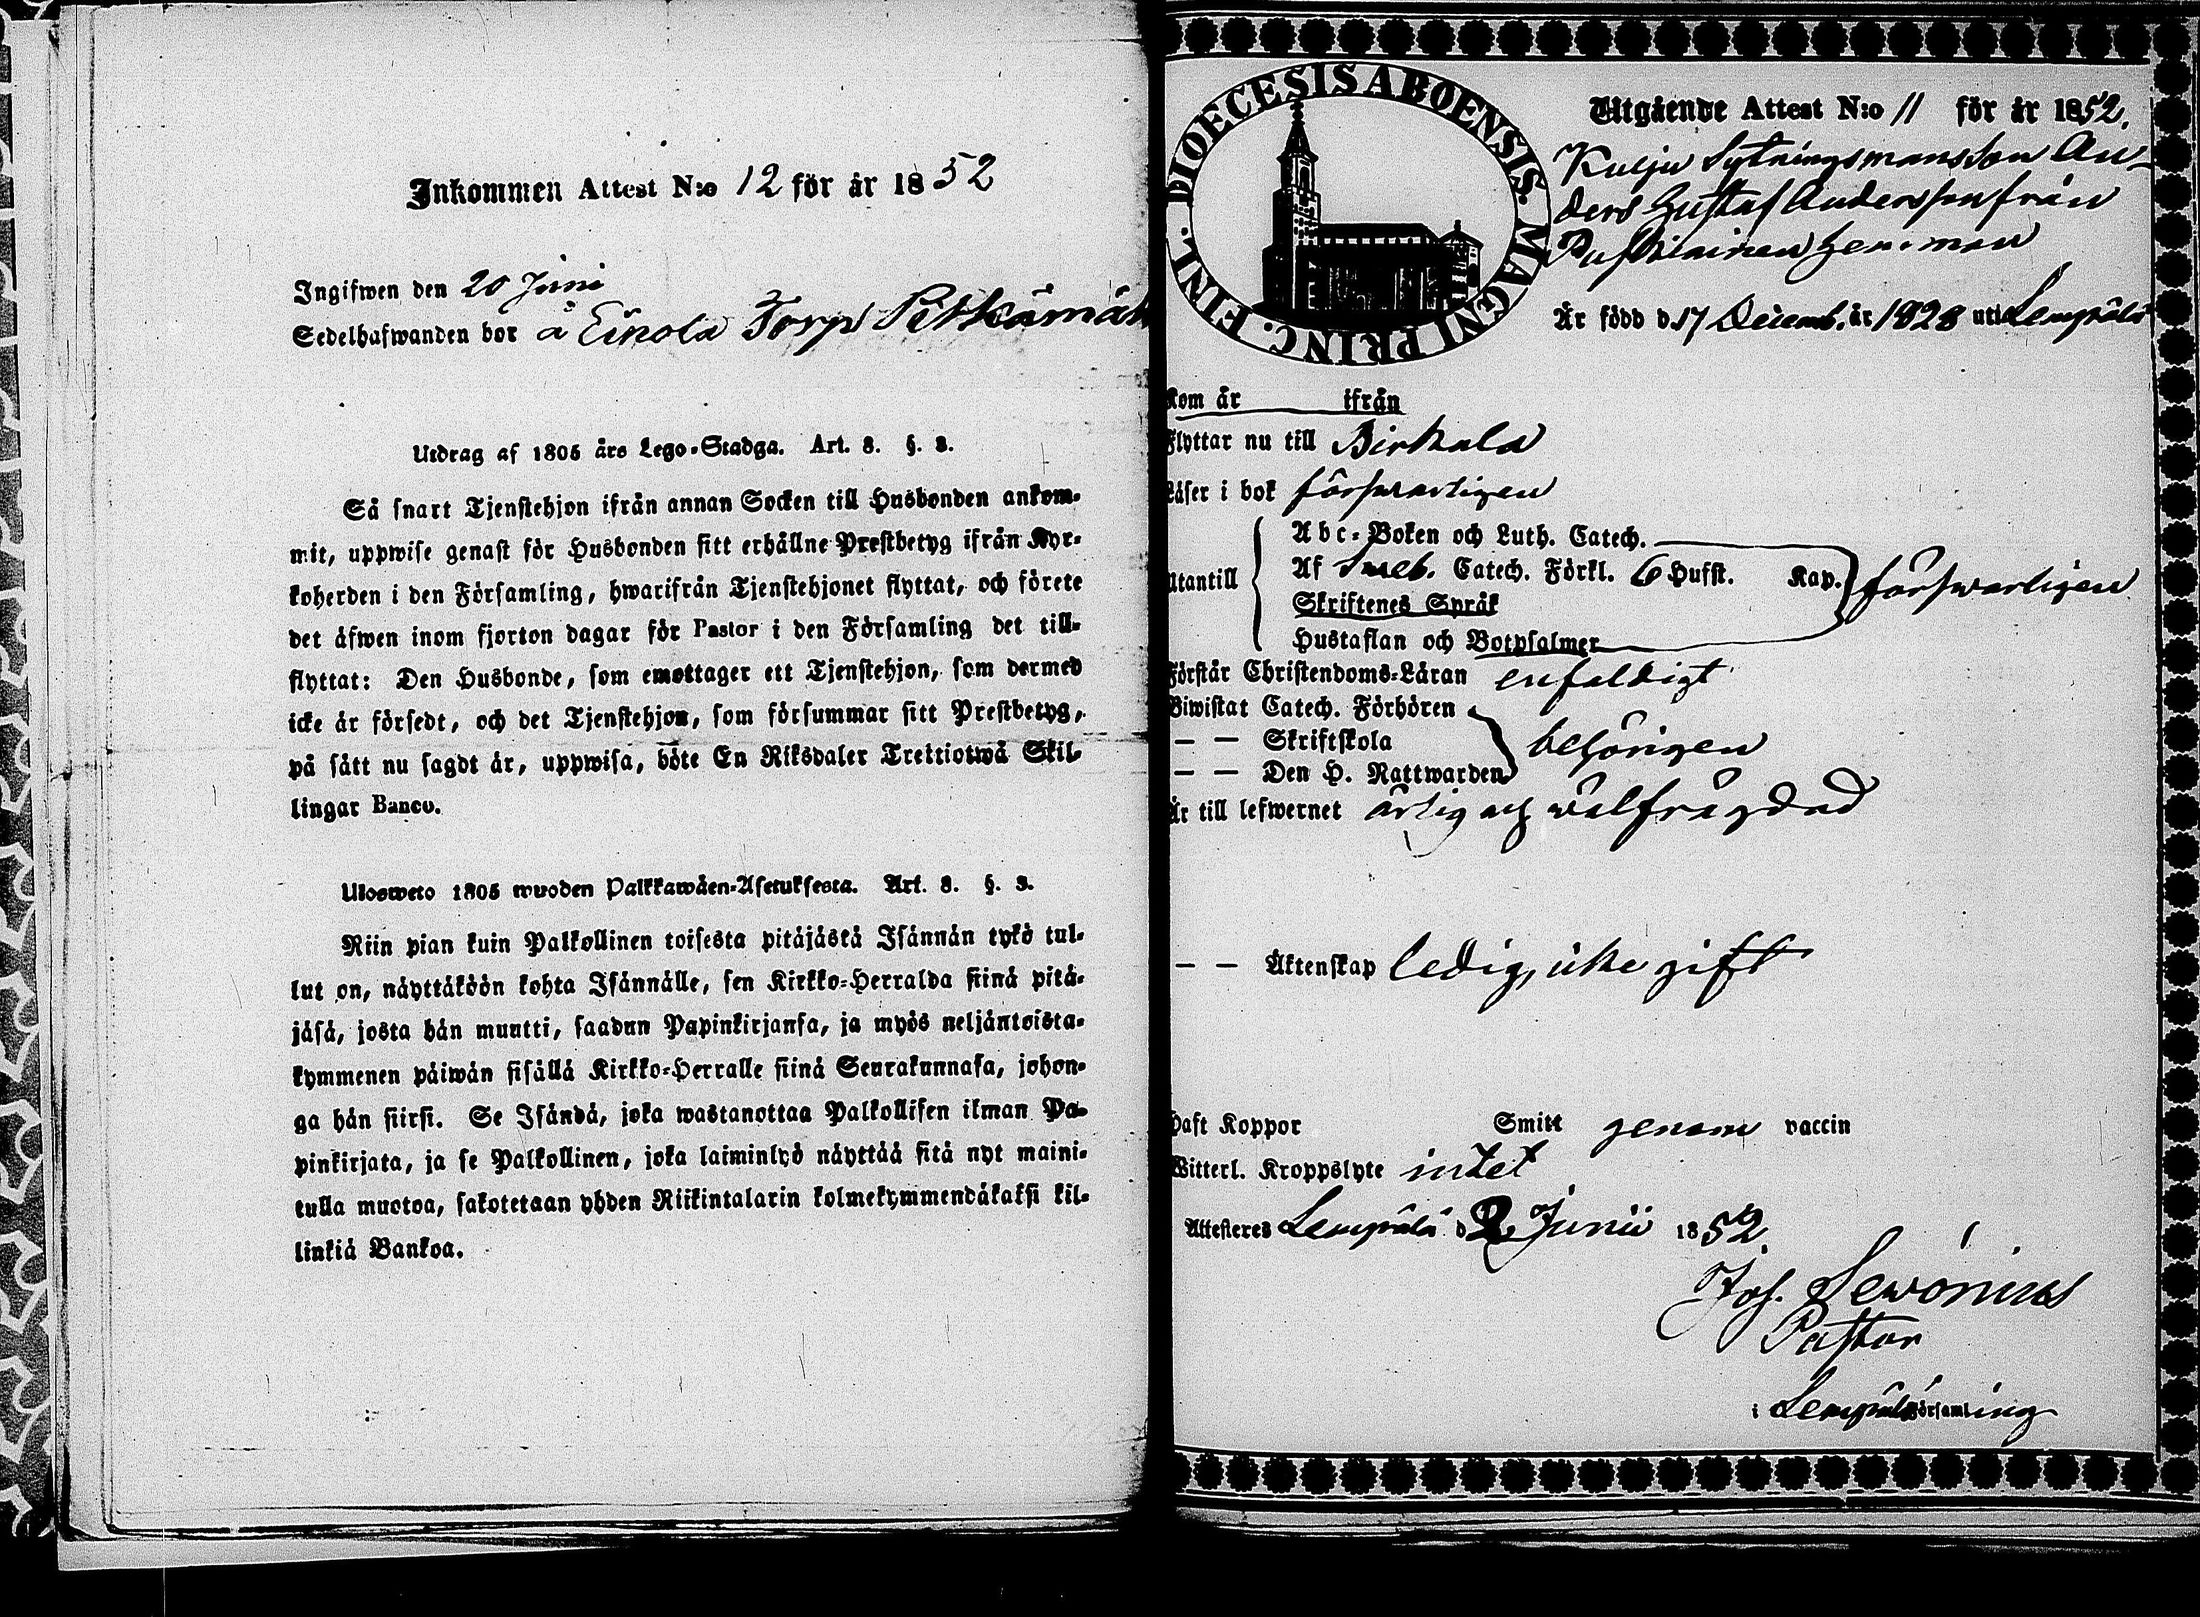 Inkommen Attest N:o 12 för år 1852
Ingifwen den 20 Juni
Sedelhafwanden bor å Einola Torp Pitkämäk
Utdrag af 1805 års Lego-Stadga. Art. 8. §. 3.
Så snart Tjenstehjon ifrån annan Socken till Husbonden ankom-
mit, uppwise genast för Husbonden sitt erhållne Prestbetyg ifrån Kyr-
koherden i den Församling, hwarifrån Tjenstehjonet flyttat, och förete
det äfwen inom fjorton dagar för Pastor i den Församling det till-
flyttat: Den Husbonde, som emottager ett Tjenstehjon, som dermed
icke är försedt, och det Tjenstehjon, som försummar sitt Prestbetyg,
på sätt nu sagdt är, uppwisa, böte En Riksdaler Trettiotwå Skil-
lingar Banco.
Ulosweto 1805 wuoden Palkkawäen-Asetuksesta. Art. 8. §. 3.
Niin pian kuin Palkollinen toisesta pitäjästä Isännän tykö tul-
lut on, näyttäköön kohta Isännälle, sen Kirkko-Herralda siinä pitä-
jäsä, josta hän muutti, saadun Papinkirjansa, ja myös neljäntoista-
kymmenen päiwän sisällä Kirkko-Herralle siinä Seurakunnasa, johon-
ga hän siirsi. Se Isändä, joka wastanottaa Palkollisen ilman Pa-
pinkirjata, ja se Palkollinen, joka laiminlyö näyttää sitä nyt maini-
tulla muotoa, sakotetaan yhden Riikintalarin kolmekymmendäkaksi kil-
linkiä Bankoa.
FINL. DIOECESIS ABOENSIS. MAGNI PRINC.
Utgående Attest N:o 11 för år 1852.
Kulju Sytningsmansson An-
ders Gustaf Andersson från
hemman
Är född d. 17 Decemb. år 1828 uti Lempälä
Kom år ifrån
Flyttar nu till Birkala
Läser i bok försvarligen
Abc-Boken och Luth. Catech.
Utantill Af Sveb. Catech. Förkl. 6 Hufst. Kap. försvarligen
Skriftenes Språk
Hustaflan och Botpsalmer
Förstår Christendoms-Läran enfaldigt
Biwistat Catech. Förhören
— — Skriftskola behörigen
— — Den H. Nattwarden
Är till lefwernet ärlig och välfrägdad
— — Äktenskap ledig, icke gift
Haft Koppor Smitt genom vaccin
Witterl. Kroppslyte intet
Attesteres Lempälä d. 2 Junii 1852
Jos. Sevónius
Pastor
i Lempälä Församling